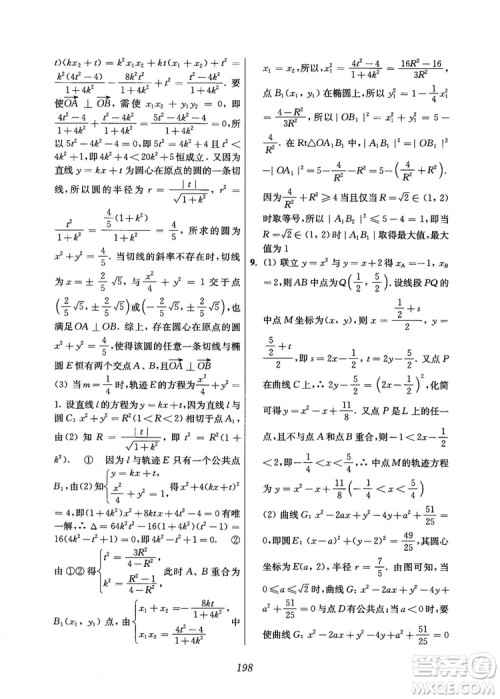 t)(kx₂+t)=k²x₁x₂+kt(x₁+x₂)+t²=
k²(4t²-4)/(1+4k²) - 8k²t²/(1+4k²) + t² = (t²-4k²)/(1+4k²). 要
使OA⊥OB, 需使 x₁x₂+y₁y₂=0, 即
(4t²-4)/(1+4k²) + (t²-4k²)/(1+4k²) = (5t²-4k²-4)/(1+4k²) = 0, 所
以5t²-4k²-4=0, 即5t²=4k²+4且t²<
4k²+1, 即4k²+4<20k²+5恒成立. 又因为
直线y=kx+t为圆心在原点的圆的一条切
线, 所以圆的半径为 r=|t|/√(1+k²), r²=
t²/(1+k²) = (4/5(1+k²))/(1+k²) = 4/5, 所求的圆为
x²+y²=4/5. 当切线的斜率不存在时, 切
线为x=±2/5√5, 与 x²/4+y²=1 交于点
(2/5√5, ±2/5√5)或(-2/5√5, ±2/5√5), 也
满足OA⊥OB. 综上, 存在圆心在原点的圆x²
+y²=4/5, 使得该圆的任意一条切线与椭
圆E恒有两个交点A、B, 且OA⊥OB
(3) 当m=1/4时, 轨迹E的方程为x²/4+y²=
1. 设直线l的方程为y=kx+t, 因为直线l与
圆C: x²+y²=R²(1<R<2)相切于点A₁,
由(2)知R=|t|/√(1+k²), 即t²=R²(1+
k²). ① 因为l与轨迹E只有一个公共点
B₁, 由(2)知{y=kx+t, x²/4+y²=1, 得x²+4(kx+t)²=
4, 即(1+4k²)x²+8ktx+4t²-4=0有唯
一解, ∴Δ=64k²t²-16(1+4k²)(t²-1)=
16(4k²-t²+1)=0, 即4k²-t²+1=0. ②
由①②得{t²=3R²/(4-R²), k²=(R²-1)/(4-R²). 此时A、B重合为
B₁(x₁, y₁)点, 由{x₁+x₂=-8kt/(1+4k²), x₁x₂=(4t²-4)/(1+4k²)
x₁=x₂, 所以, x₁²=(4t²-4)/(1+4k²)=(16R²-16)/(3R²),
点B₁(x₁, y₁)在椭圆上, 所以y₁²=1-1/4x₁²=
(4-R²)/(3R²), 所以|OB₁|²=x₁²+y₁²=5-
4/R². 在Rt△OA₁B₁中, |A₁B₁|²=|OB₁|²
-|OA₁|²=5-4/R²-R²=5-(4/R²+R²),
因为4/R²+R²≥4当且仅当R=√2∈(1, 2)
时取等号, 所以|A₁B₁|²≤5-4=1, 即当
R=√2∈(1, 2)时|A₁B₁|取得最大值, 最
大值为1
9. (1) 联立y=x²与y=x+2得x_A=-1, x_B=
2, 则AB中点Q(1/2, 5/2). 设线段PQ的
中点M坐标为(x, y), 则x=(1/2+s)/2, y=
(5/2+t)/2, 即s=2x-1/2, t=2y-5/2. 又点P
在曲线C上, ∴2y-5/2=(2x-1/2)². 化简
可得y=x²-x+11/8. 又点P是L上的任一
点, 且不与点A和点B重合, 则-1<2x-
1/2<2, 即-1/4<x<5/4, ∴中点M的轨迹方程
为y=x²-x+11/8(-1/4<x<5/4)
(2) 曲线G: x²-2ax+y²-4y+a²+51/25
=0, 即圆E: (x-a)²+(y-2)²=49/25, 其圆心
坐标为E(a, 2), 半径r=7/5. 由图可知, 当
0≤a≤√2时, 曲线G: x²-2ax+y²-4y+
a²+51/25=0与点D有公共点; 当a<0时, 要
使曲线G: x²-2ax+y²-4y+a²+51/25=0
198